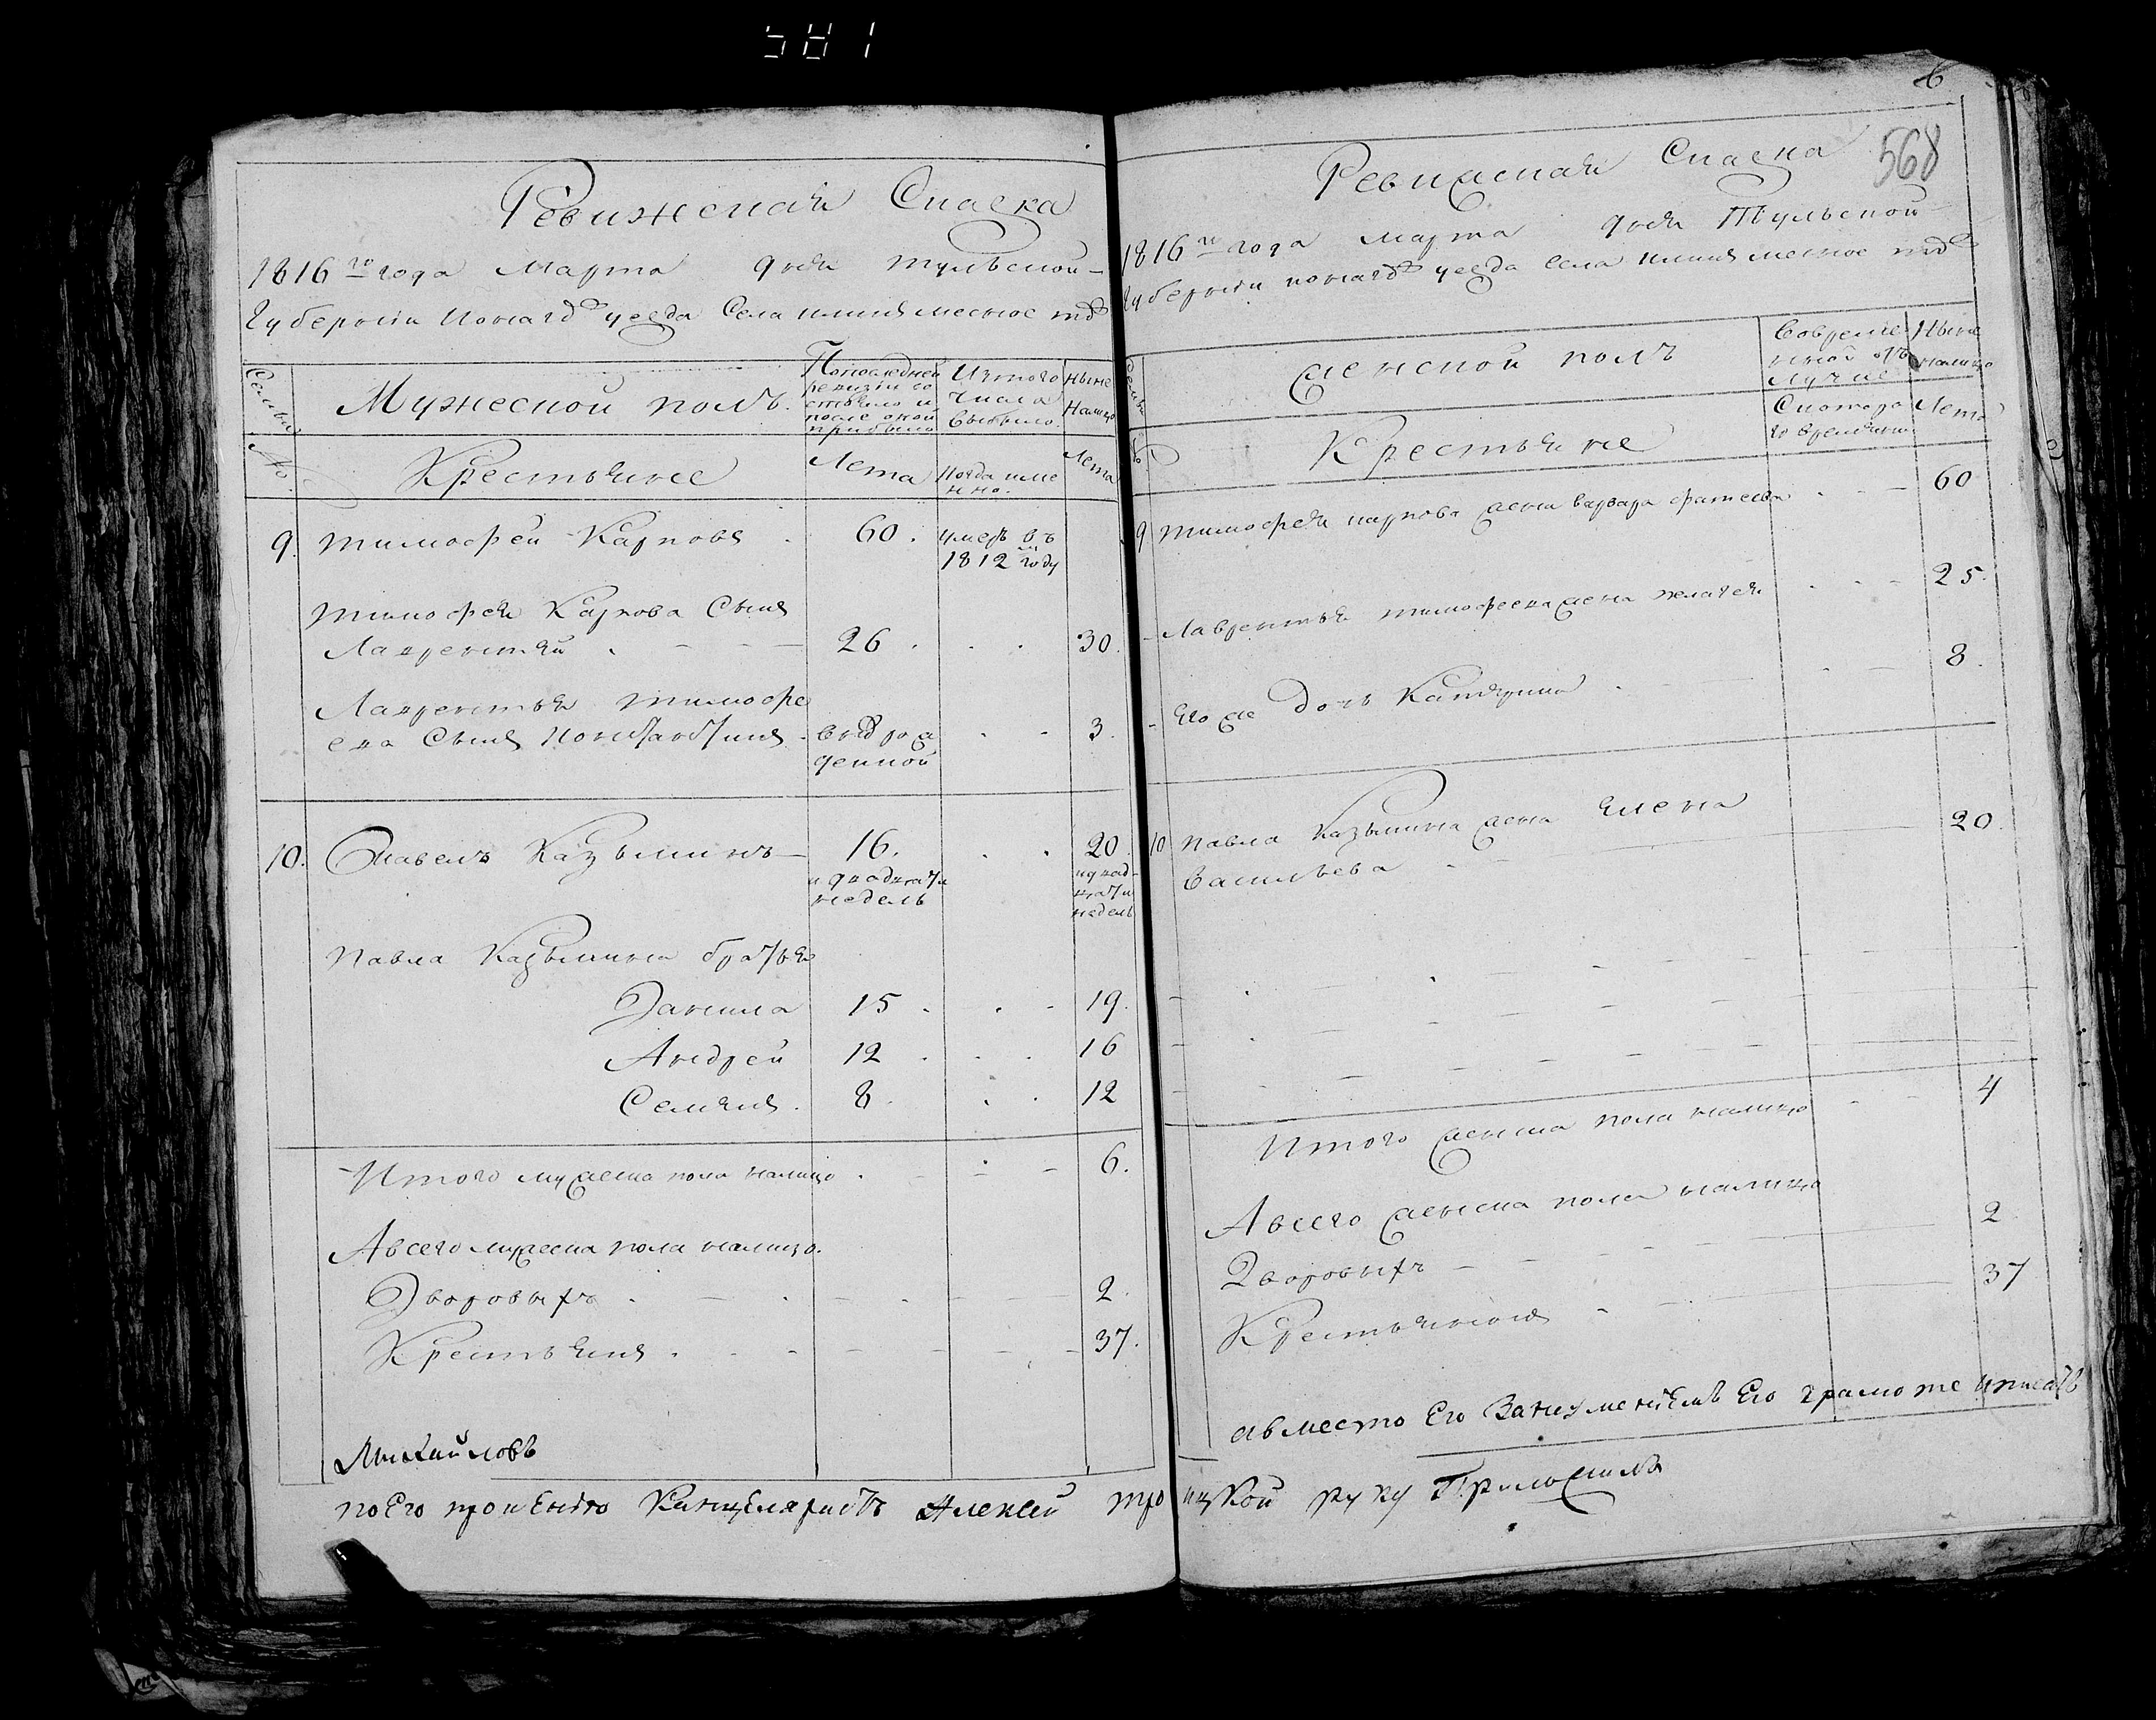 581
6
568
Ревижская Скаска
1816 го года Марта дня тульской
Губернии уезда Села
Семьи
Мужеской полъ.
По последней ревизии состояло и после оной прибыло
Из того числа выбыло.
Ныне Налицо
№
Крестьяне
Лета
Когда имянно.
Лета
9. тимофей Карповъ . 60. умеръ въ
1812 м году
тимофея Карпова Сынъ
Лаврентей . 26 . . . 30.
Лаврентья тимофе
ева Сынъ Константинъ . вновь рож 3.
денной
10. Павелъ Казьминъ 16. . . 20.
и двадцати
недель
и двад
цати
недель
Павла Казьмина братья
Данила 15 . . 19.
Андрей 12 . . . 16
Семянъ. 8 . . 12
Итого мужеска пола налицо . 6.
А всего мужеска пола налицо.
Дворовыхъ . 2.
Крестьянъ . 37.
Михайловъ
по Его прошению Канцеляристъ Алексей Троицкой руку Приложилъ
Ревижская Скаска
1816 го года Марта дня Тульской
Губернии уезда Села
Семьи
женской полъ
Во временной отлучке
Ныне налицо
№
Крестьяне
С котораго времяни
Лета
9 тимофея карпова жена варвара 60
- Лаврентья тимофеева жена пелагея 25.
- Его же Дочь Катерина . 8.
10 павла Казьмина жена Елена
Васильева 20
Итого женска пола налицо 4
А всего женска пола налицо
Дворовыхъ 2
Крестьянокъ 37
а вместо Его За неуменiемъ Его грамоте писать